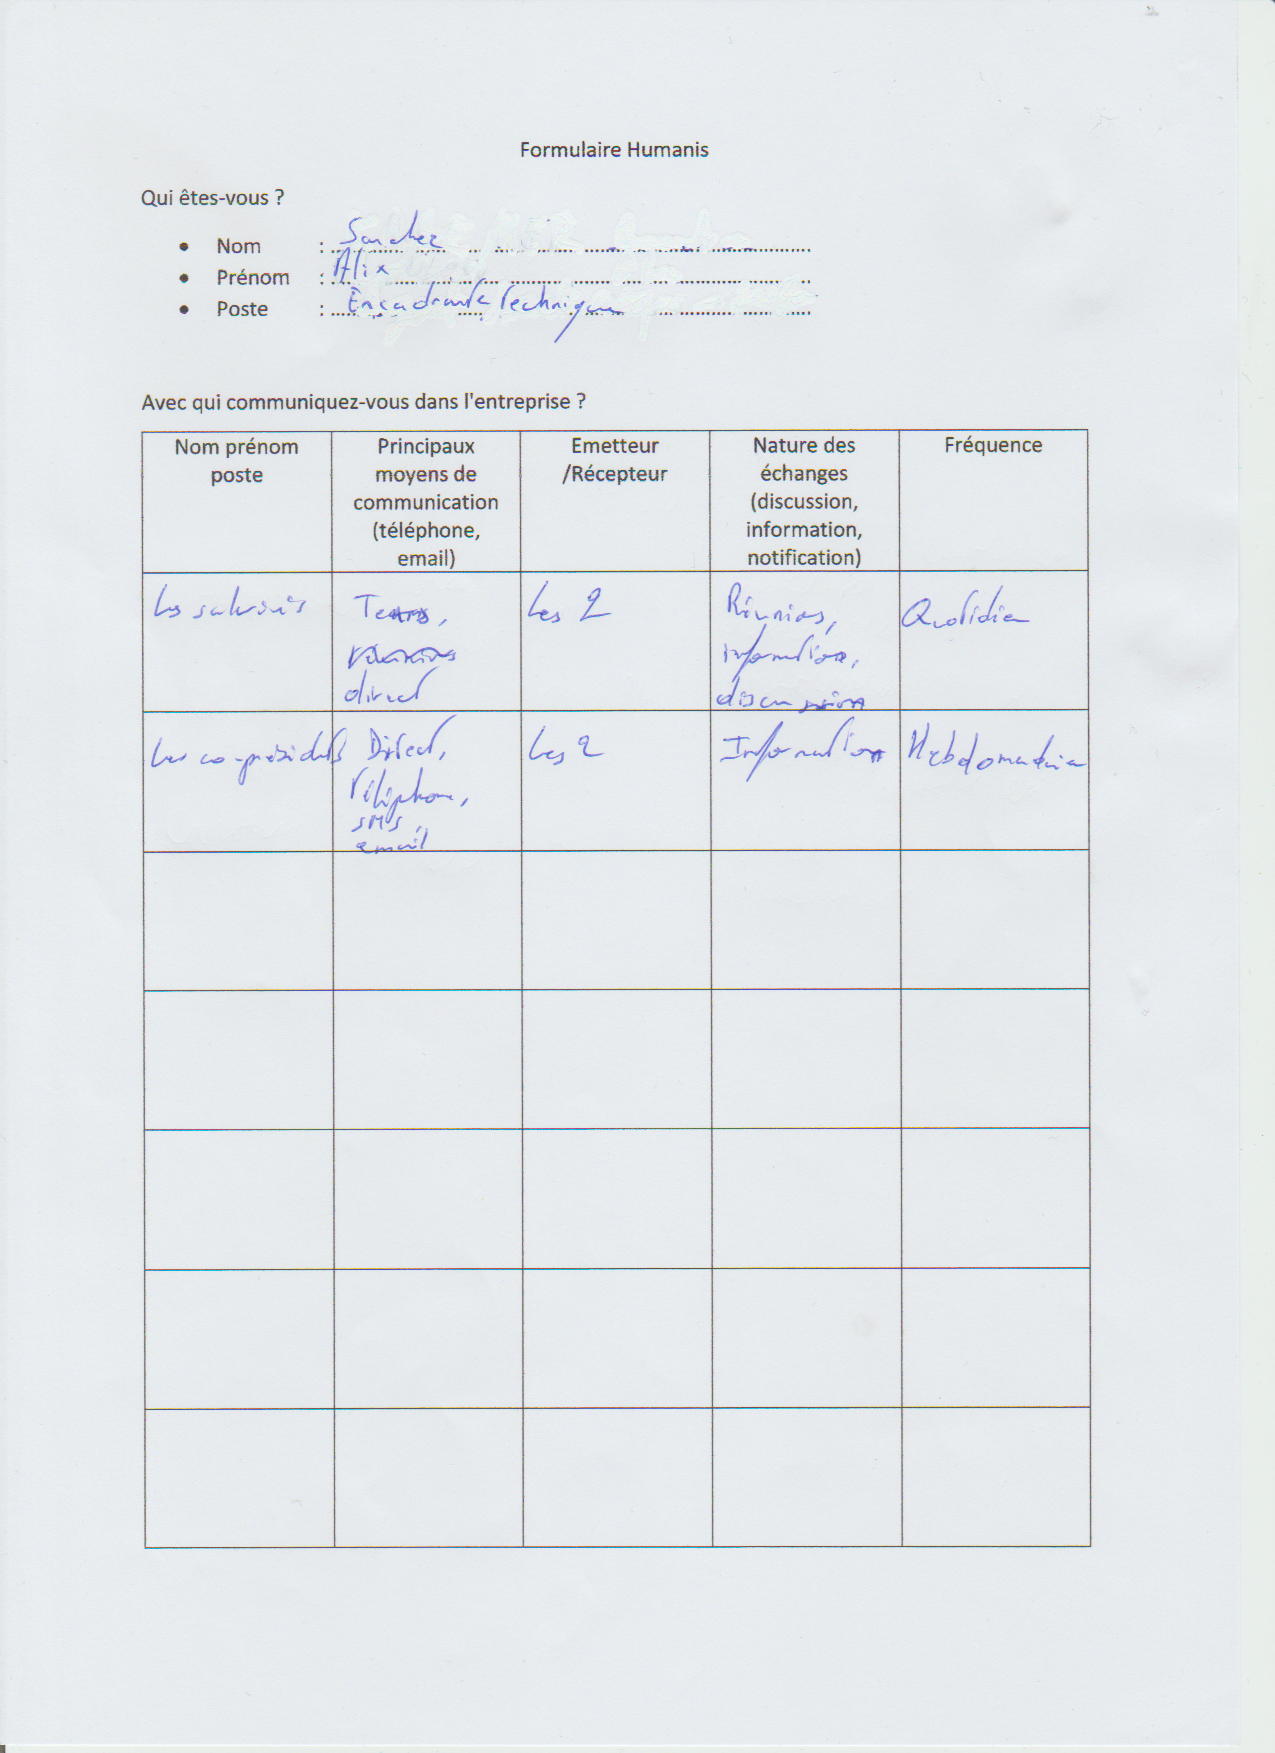 Formulaire Humanis
Qui êtes-vous ?
• Nom : Sanchez
• Prénom : Alix
• Poste : Encadrante Technique
Avec qui communiquez-vous dans l'entreprise ?
Nom prénom
poste
Principaux
moyens de
communication
(téléphone,
email)
Emetteur
/Récepteur
Nature des
échanges
(discussion,
information,
notification)
Fréquence
Les salariés
Teams,
direct
Les 2
Réunions,
information,
discussion
Quotidien
Les co-présidents
Direct,
Téléphone,
SMS,
email
Les 2
Information
Hebdomadaire